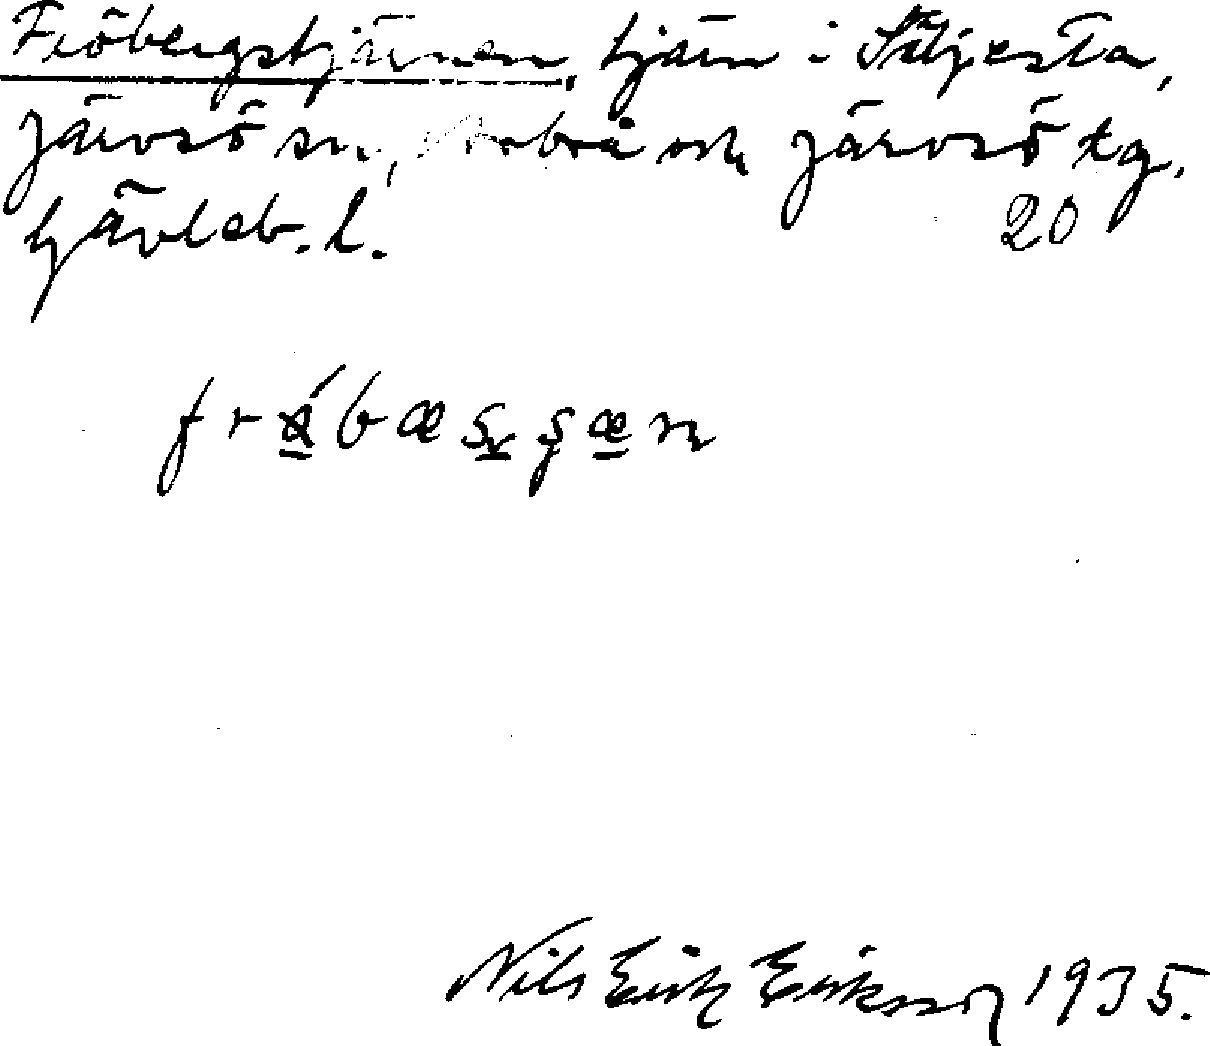 Fröbergstjärnen, tjärn i Säljesta,
Järvsö sn, Arbrå och Järvsö tg.
Gävleb. l. 20
Nils Erik Eriksson 1935.